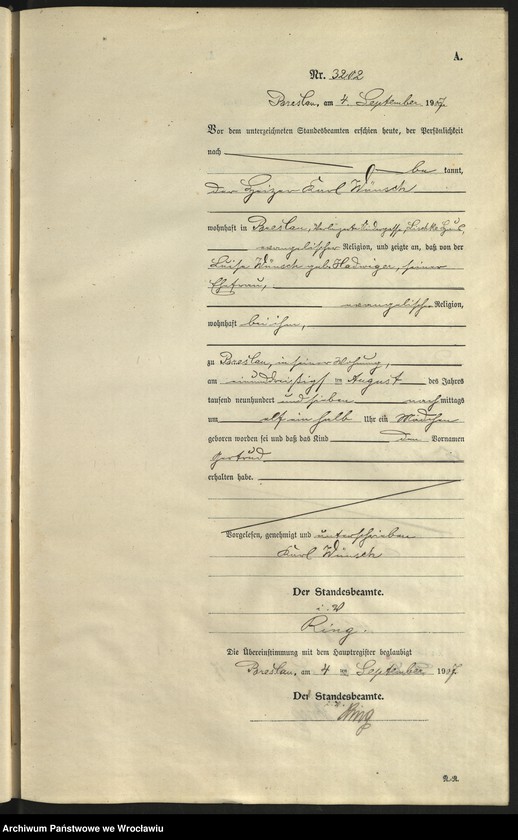 A.
Nr. 3202
Breslau, am 4. September 1907.
Vor dem unterzeichneten Standesbeamten erschien heute, der Persönlichkeit
nach
be kannt,
der Heizer Karl Wünsch
wohnhaft in Breslau,
evangelischer Religion, und zeigte an, daß von der
Luise Wünsch geb. Hadwiger, seiner
Ehefrau,
evangelischer Religion,
wohnhaft bei ihm,
zu Breslau, in seiner Wohnung,
am einunddreißigsten August des Jahres
tausend neunhundert und sieben nachmittags
um elf ein halb Uhr ein Mädchen
geboren worden sei und daß das Kind den Vornamen
Gertrud
erhalten habe.
Vorgelesen, genehmigt und unterschrieben
Karl Wünsch
Der Standesbeamte.
i. V.
Ring.
Die Übereinstimmung mit dem Hauptregister beglaubigt
Breslau, am 4 ten September 1907.
Der Standesbeamte.
Ring
R.-R.
Archiwum Państwowe we Wrocławiu